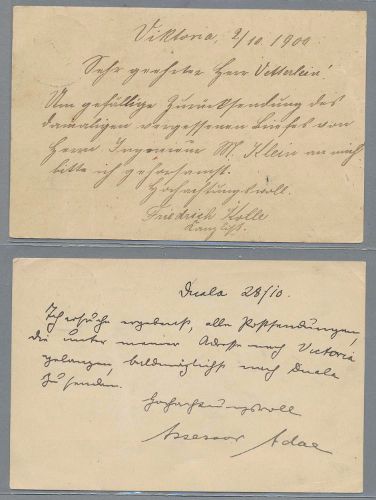 Viktoria, 2/10. 1900.
Sehr geehrter Herr Vetterlein!
Um gefällige Zurücksendung des
damaligen vergessenen Briefes von
Herrn Ingenieur M. Klein an mich
bitte ich gehorsamst.
Hochachtungsvoll.
Friedrich Kolle
Kanzlist.
Duala 28/10.
Ich ersuche ergebenst, alle Postsendungen,
die unter meiner Adresse nach Victoria
gelangen, baldmöglichst nach Duala
zu senden.
Hochachtungsvoll
Assessor Adae